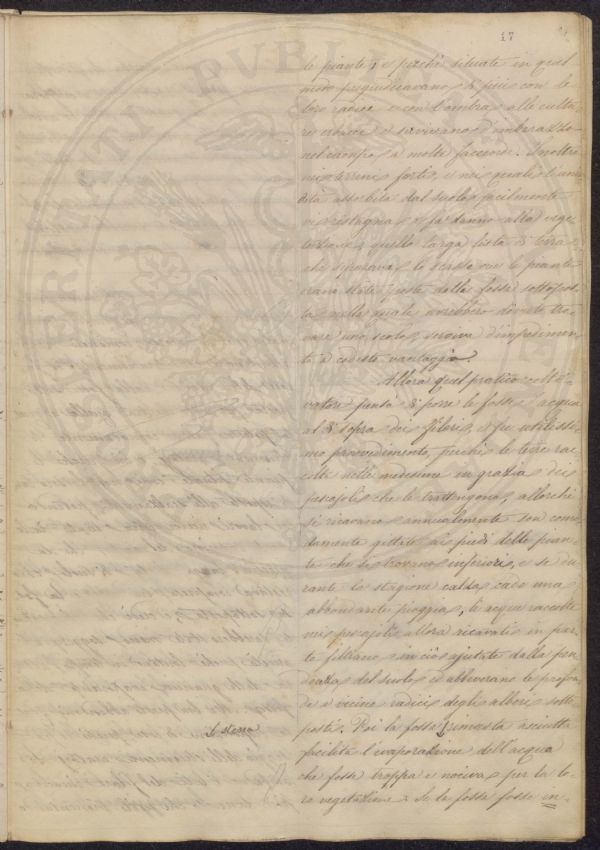 17
le piante; e perchè situate in quel
modo pregiudicavano di più con le
loro radici e con l'ombra alle cultu
re erbacee e servivano d'imbarazzo
nel campo a molte faccende. Inoltre
nei terreni forti, e nei quali l'umi
dità assorbita dal suolo facilmente
vi ristagna e fa danno alla vege
tazione, quella larga lista di terra
che separava lo scasso ove le piante
erano state poste dalla fossa sottopos
ta nella quale avrebbero dovuto tro
vare uno scolo, serviva d'impedimen
to a codesto vantaggio.
Allora quel pratico colti
vatore pensò di porre le fosse a acqua
al di sopra dei filari, e fu utilissi
mo provvedimento, perchè le terre rac
colte nelle medesime in grazia dei
pescajoli che le trattengono, allorchè
si ricavano annualmente son como
damente gittate ai piedi delle pian
te che si trovano inferiori, e se du
rante la stagione calda cade una
abbondante pioggia, le acque raccolte
nei pescajoli allora ricavati in par
te filtrano, in ciò ajutate dalla pen
denza del suolo, ed abbeverano le profon
de e vicine radici degli alberi sotto
posti. Poi la fossa rimasta asciutta
Il stessa
facilita l'evaporazione dell'acqua
che fosse troppa e nociva per la lo
ro vegetazione. Se la fossa fosse in-